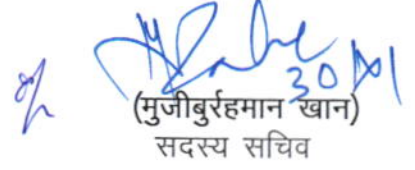 30
(मुजीबुर्रहमान खान)
सदस्य सचिव